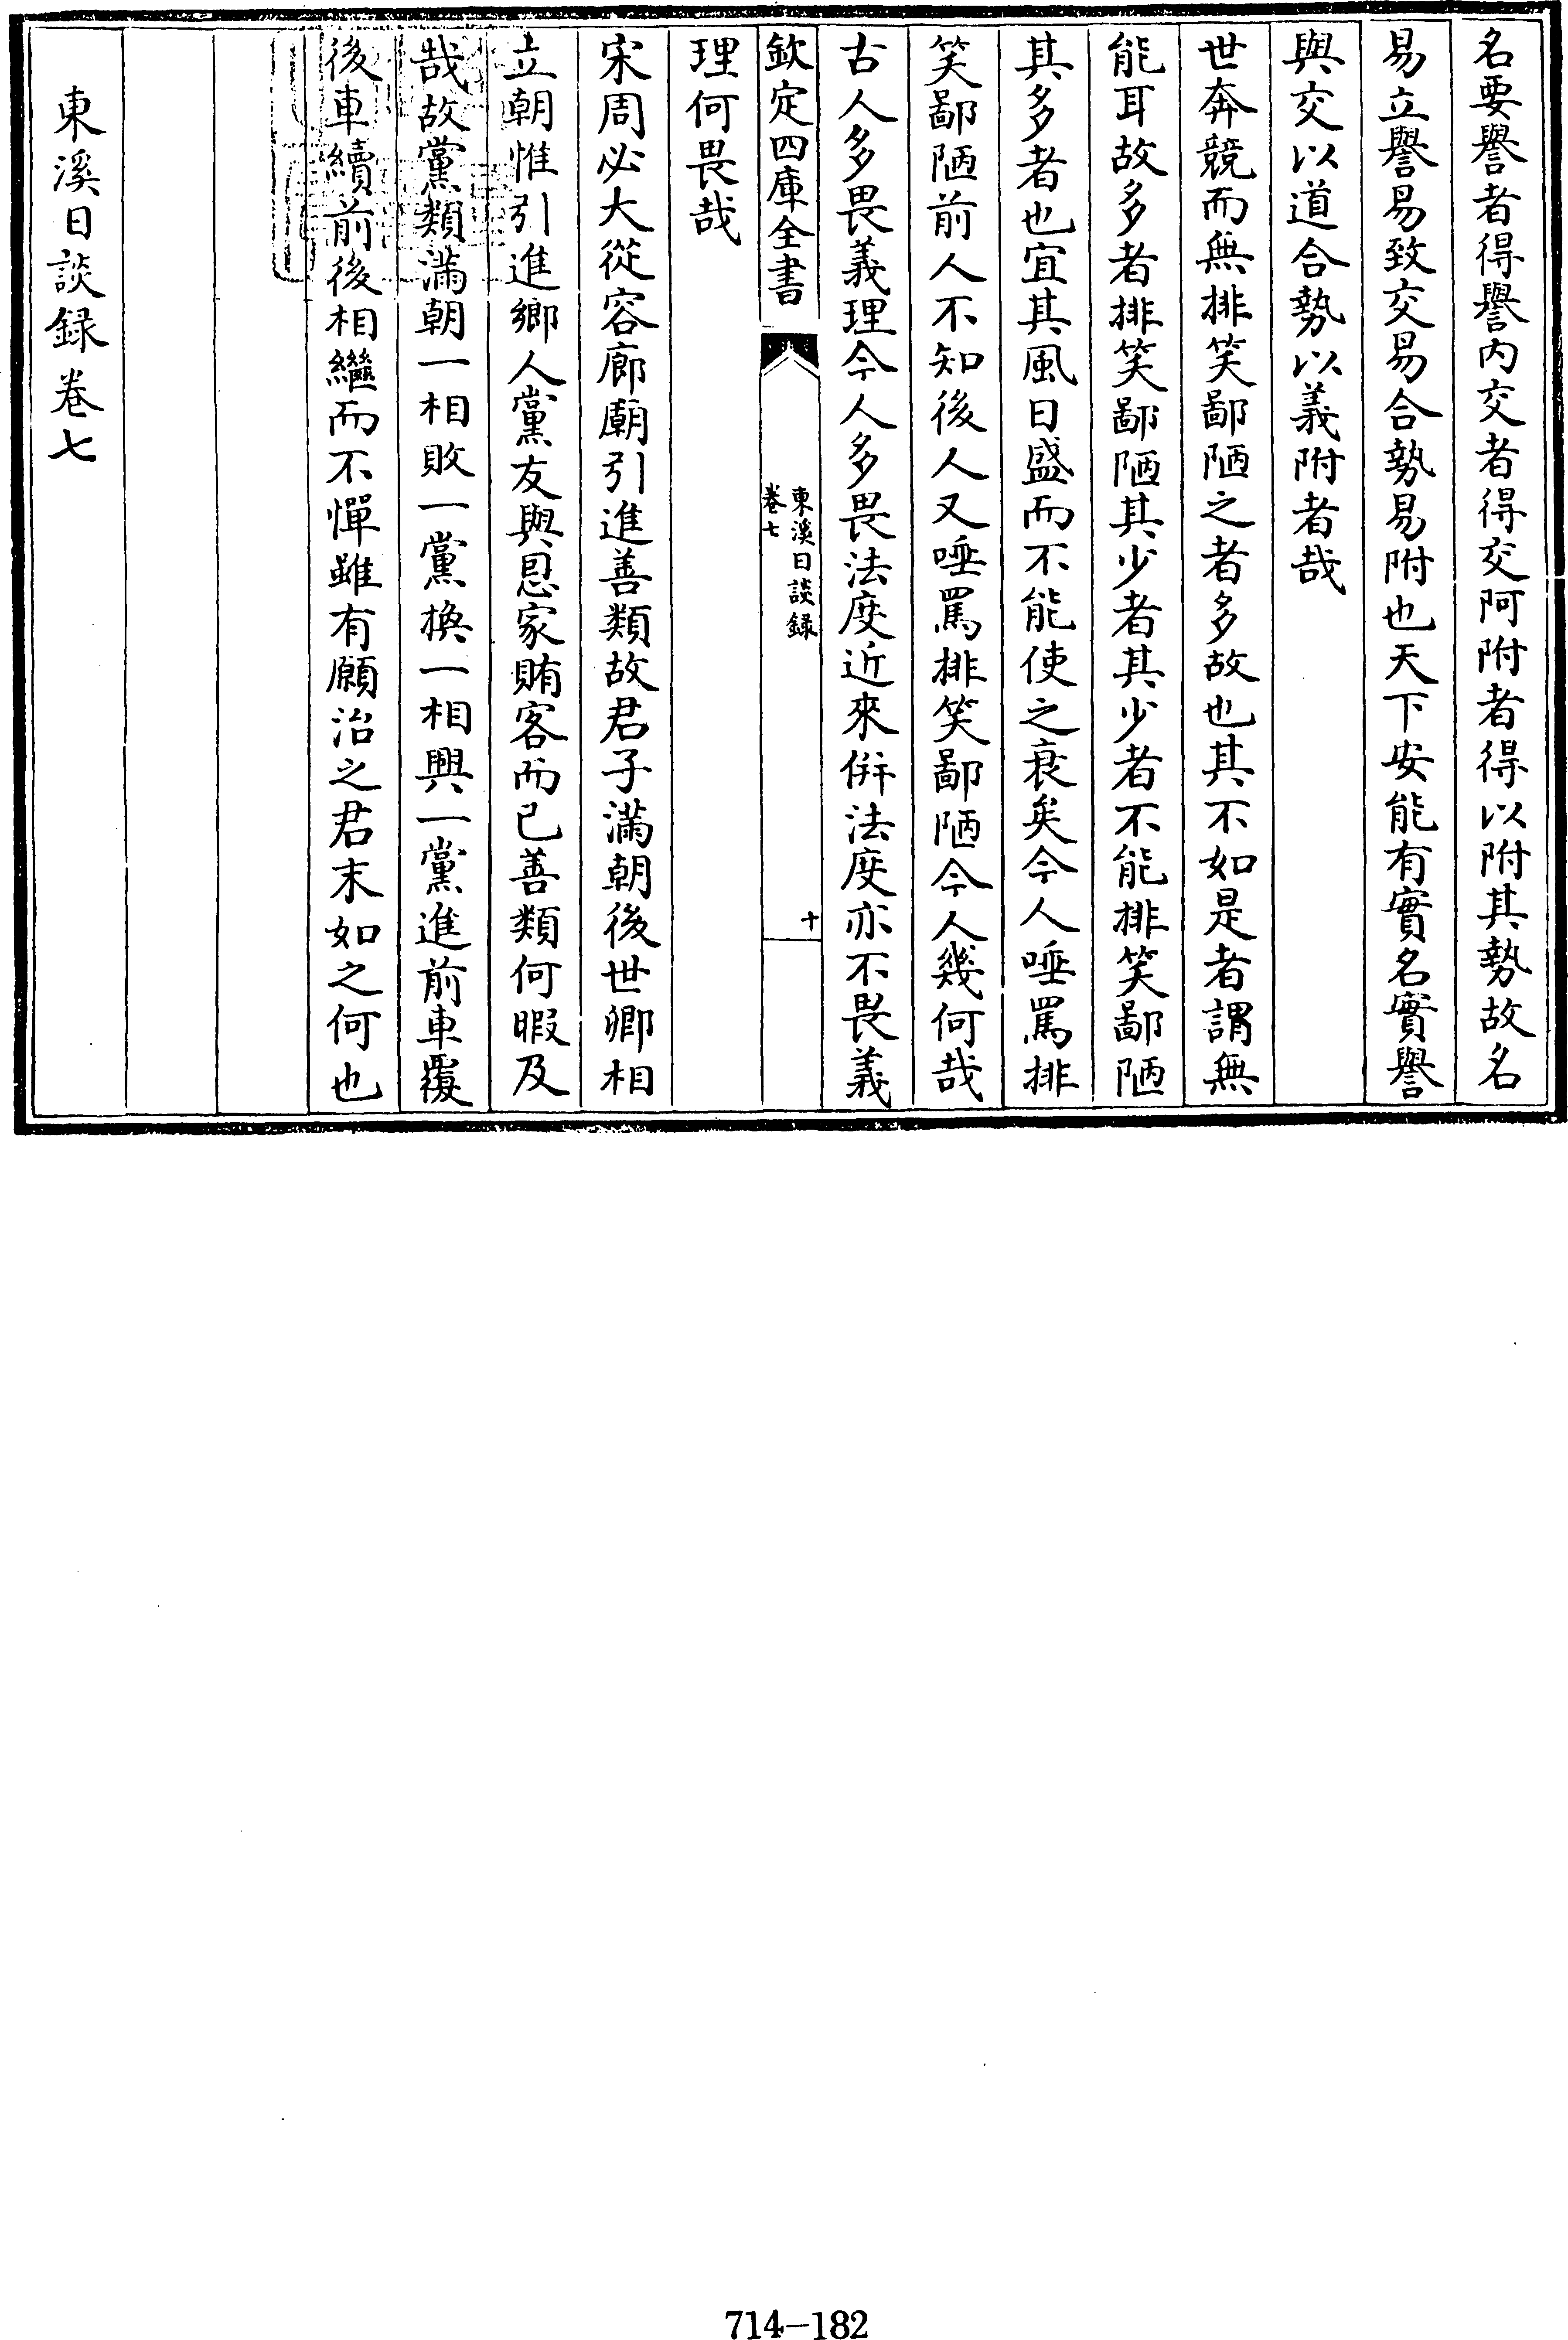 名要譽者得譽内交者得交阿附者得以附其勢故名
易立譽易致交易合勢易附也天下安能有實名實譽
與交以道合勢以義附者哉
世奔競而無排笑鄙陋之者多故也其不如是者謂無
能耳故多者排笑鄙陋其少者其少者不能排笑鄙陋
其多者也宜其風日盛而不能使之衰矣今人唾罵排
笑鄙陋前人不知後人又唾罵排笑鄙陋今人幾何哉
古人多畏義理今人多畏法度近來併法度亦不畏義
欽定四庫全書
東溪日談録
卷七
十
理何畏哉
宋周必大從容廊廟引進善類故君子滿朝後世卿相
立朝惟引進鄉人黨友與恩家賄客而已善類何暇及
哉故黨類滿朝一相敗一黨換一相興一黨進前車覆
後車續前後相繼而不憚雖有願治之君末如之何也
東溪日談録卷七
714-182